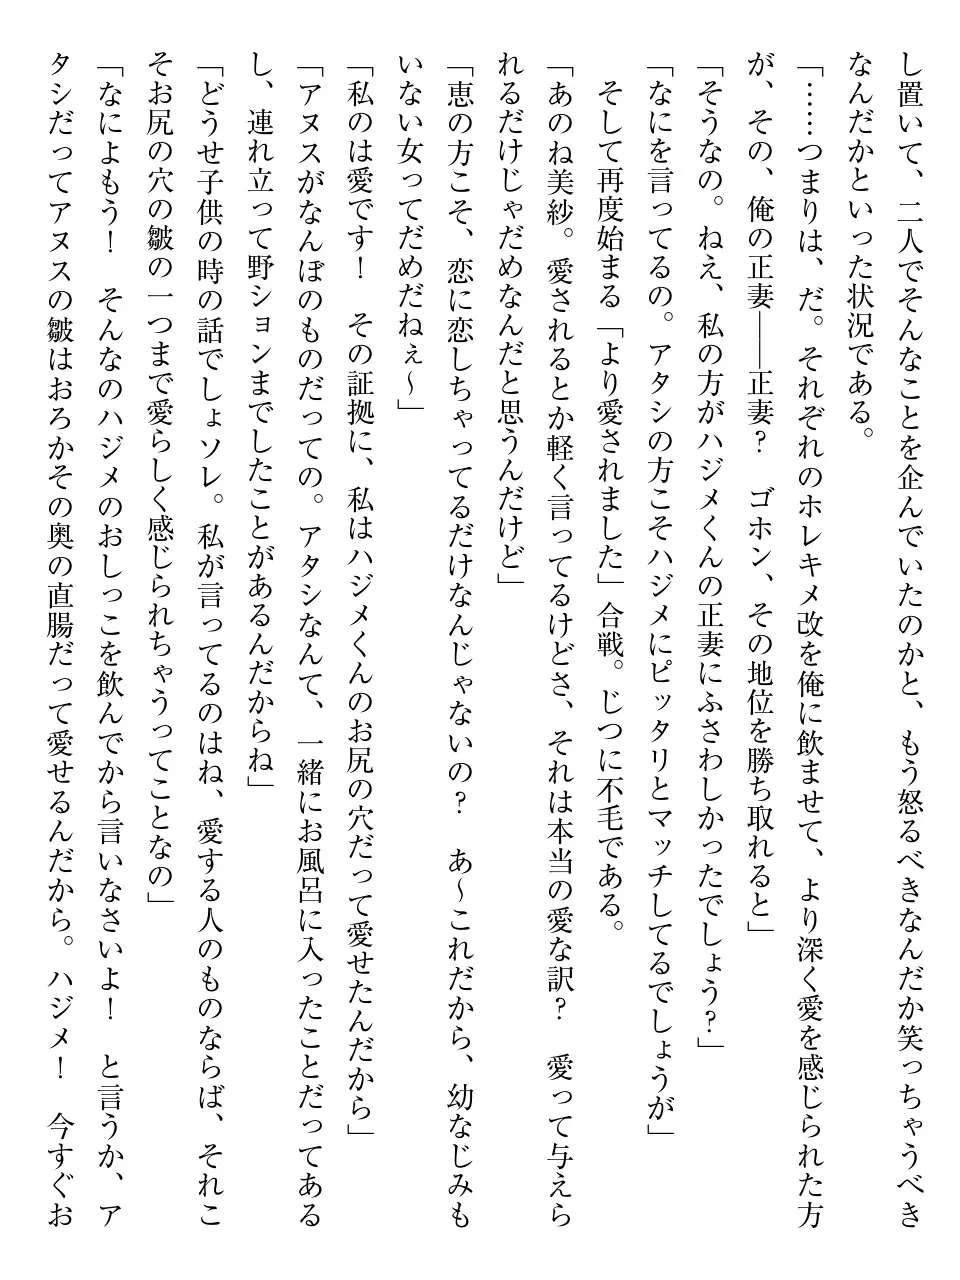 し置いて、二人でそんなことを企んでいたのかと、もう怒るべきなんだか笑っちゃうべき
なんだかといった状況である。
「……つまりは、だ。それぞれのホレキメ改を俺に飲ませて、より深く愛を感じられた方
が、その、俺の正妻――正妻?　ゴホン、その地位を勝ち取れると」
「そうなの。ねえ、私の方がハジメくんの正妻にふさわしかったでしょう?」
「なにを言ってるの。アタシの方こそハジメにピッタリとマッチしてるでしょうが」
　そして再度始まる「より愛されました」合戦。じつに不毛である。
「あのね美紗。愛されるとか軽く言ってるけどさ、それは本当の愛な訳?　愛って与えら
れるだけじゃだめなんだと思うんだけど」
「恵の方こそ、恋に恋しちゃってるだけなんじゃないの?　あ～これだから、幼なじみも
いない女ってだめだねぇ～」
「私のは愛です!　その証拠に、私はハジメくんのお尻の穴だって愛せたんだから」
「アヌスがなんぼのものだっての。アタシなんて、一緒にお風呂に入ったことだってある
し、連れ立って野ションまでしたことがあるんだからね」
「どうせ子供の時の話でしょソレ。私が言ってるのはね、愛する人のものならば、それこ
そお尻の穴の皺の一つまで愛らしく感じられちゃうってことなの」
「なによもう!　そんなのハジメのおしっこを飲んでから言いなさいよ!　と言うか、ア
タシだってアヌスの皺はおろかその奥の直腸だって愛せるんだから。ハジメ!　今すぐお